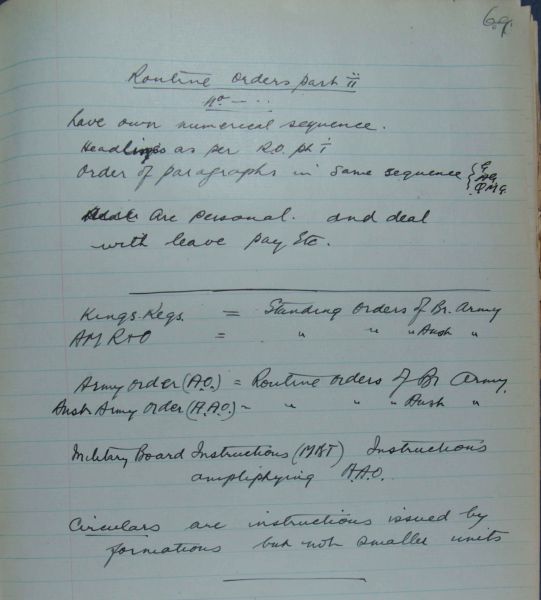 69.
Routine Orders part ii
No - ..
have own numerical sequence.
Headings as per R.O. pt i
Order of paragraphs in same sequence { G
AG
QMG.
Are personal. and deal
with leave pay Etc.
Kings Regs. = Standing Orders of Br. Army
AMR+O = " " " Aust "
Army Order (A.O.) = Routine Orders of Br Army.
Aust Army Order (A.A.O.) = " " " Aust "
Military Board Instructions (MBI) Instructions
ampliphying A.A.O.
Circulars are instructions issued by
formations but not smaller units